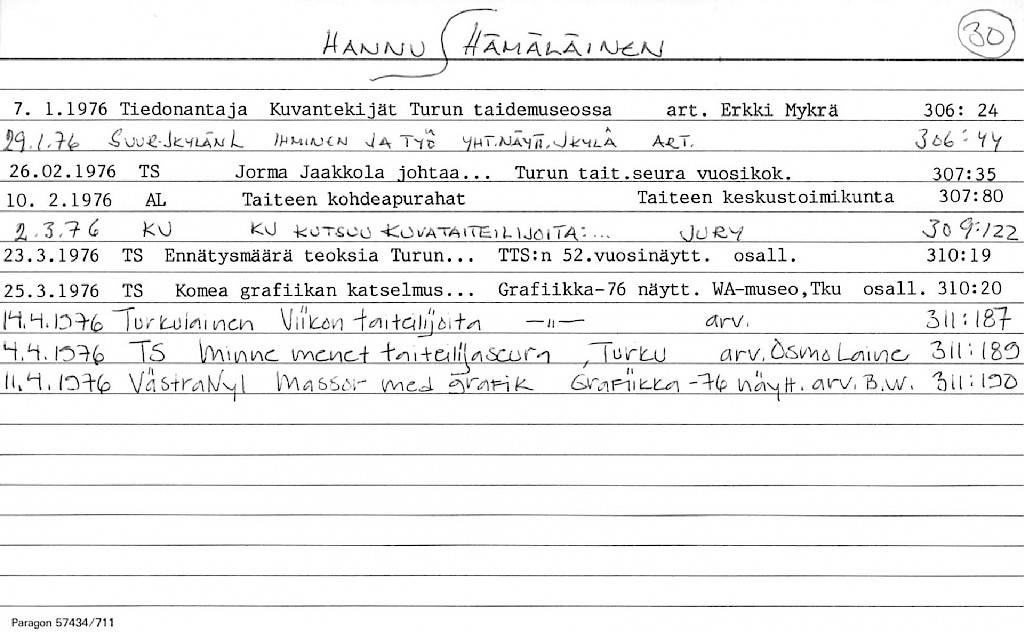 HANNU HÄMÄLÄINEN 30
7. 1.1976 Tiedonantaja Kuvantekijät Turun taidemuseossa art. Erkki Mykrä 306: 24
29.1.76 SUUR-JKYLÄN L IHMINEN JA TYÖ YHT.NÄYTT. JKYLÄ ART. 306:44
26.02.1976 TS Jorma Jaakkola johtaa... Turun tait.seura vuosikok. 307:35
10. 2.1976 AL Taiteen kohdeapurahat Taiteen keskustoimikunta 307:80
2.3.76 KU KU KUTSUU KUVATAITEILIJOITA:... JURY 309:122
23.3.1976 TS Ennätysmäärä teoksia Turun... TTS:n 52.vuosinäytt. osall. 310:19
25.3.1976 TS Komea grafiikan katselmus... Grafiikka-76 näytt. WA-museo,Tku osall. 310:20
14.4.1976 Turkulainen Viikon taiteilijoita —"— arv. 311:187
4.4.1976 TS Minne menet taiteilijaseura , Turku arv. Osmo Laine 311:189
11.4.1976 VästraNyl Massor med grafik Grafiikka-76 näytt. arv. B.W. 311:190
Paragon 57434/711